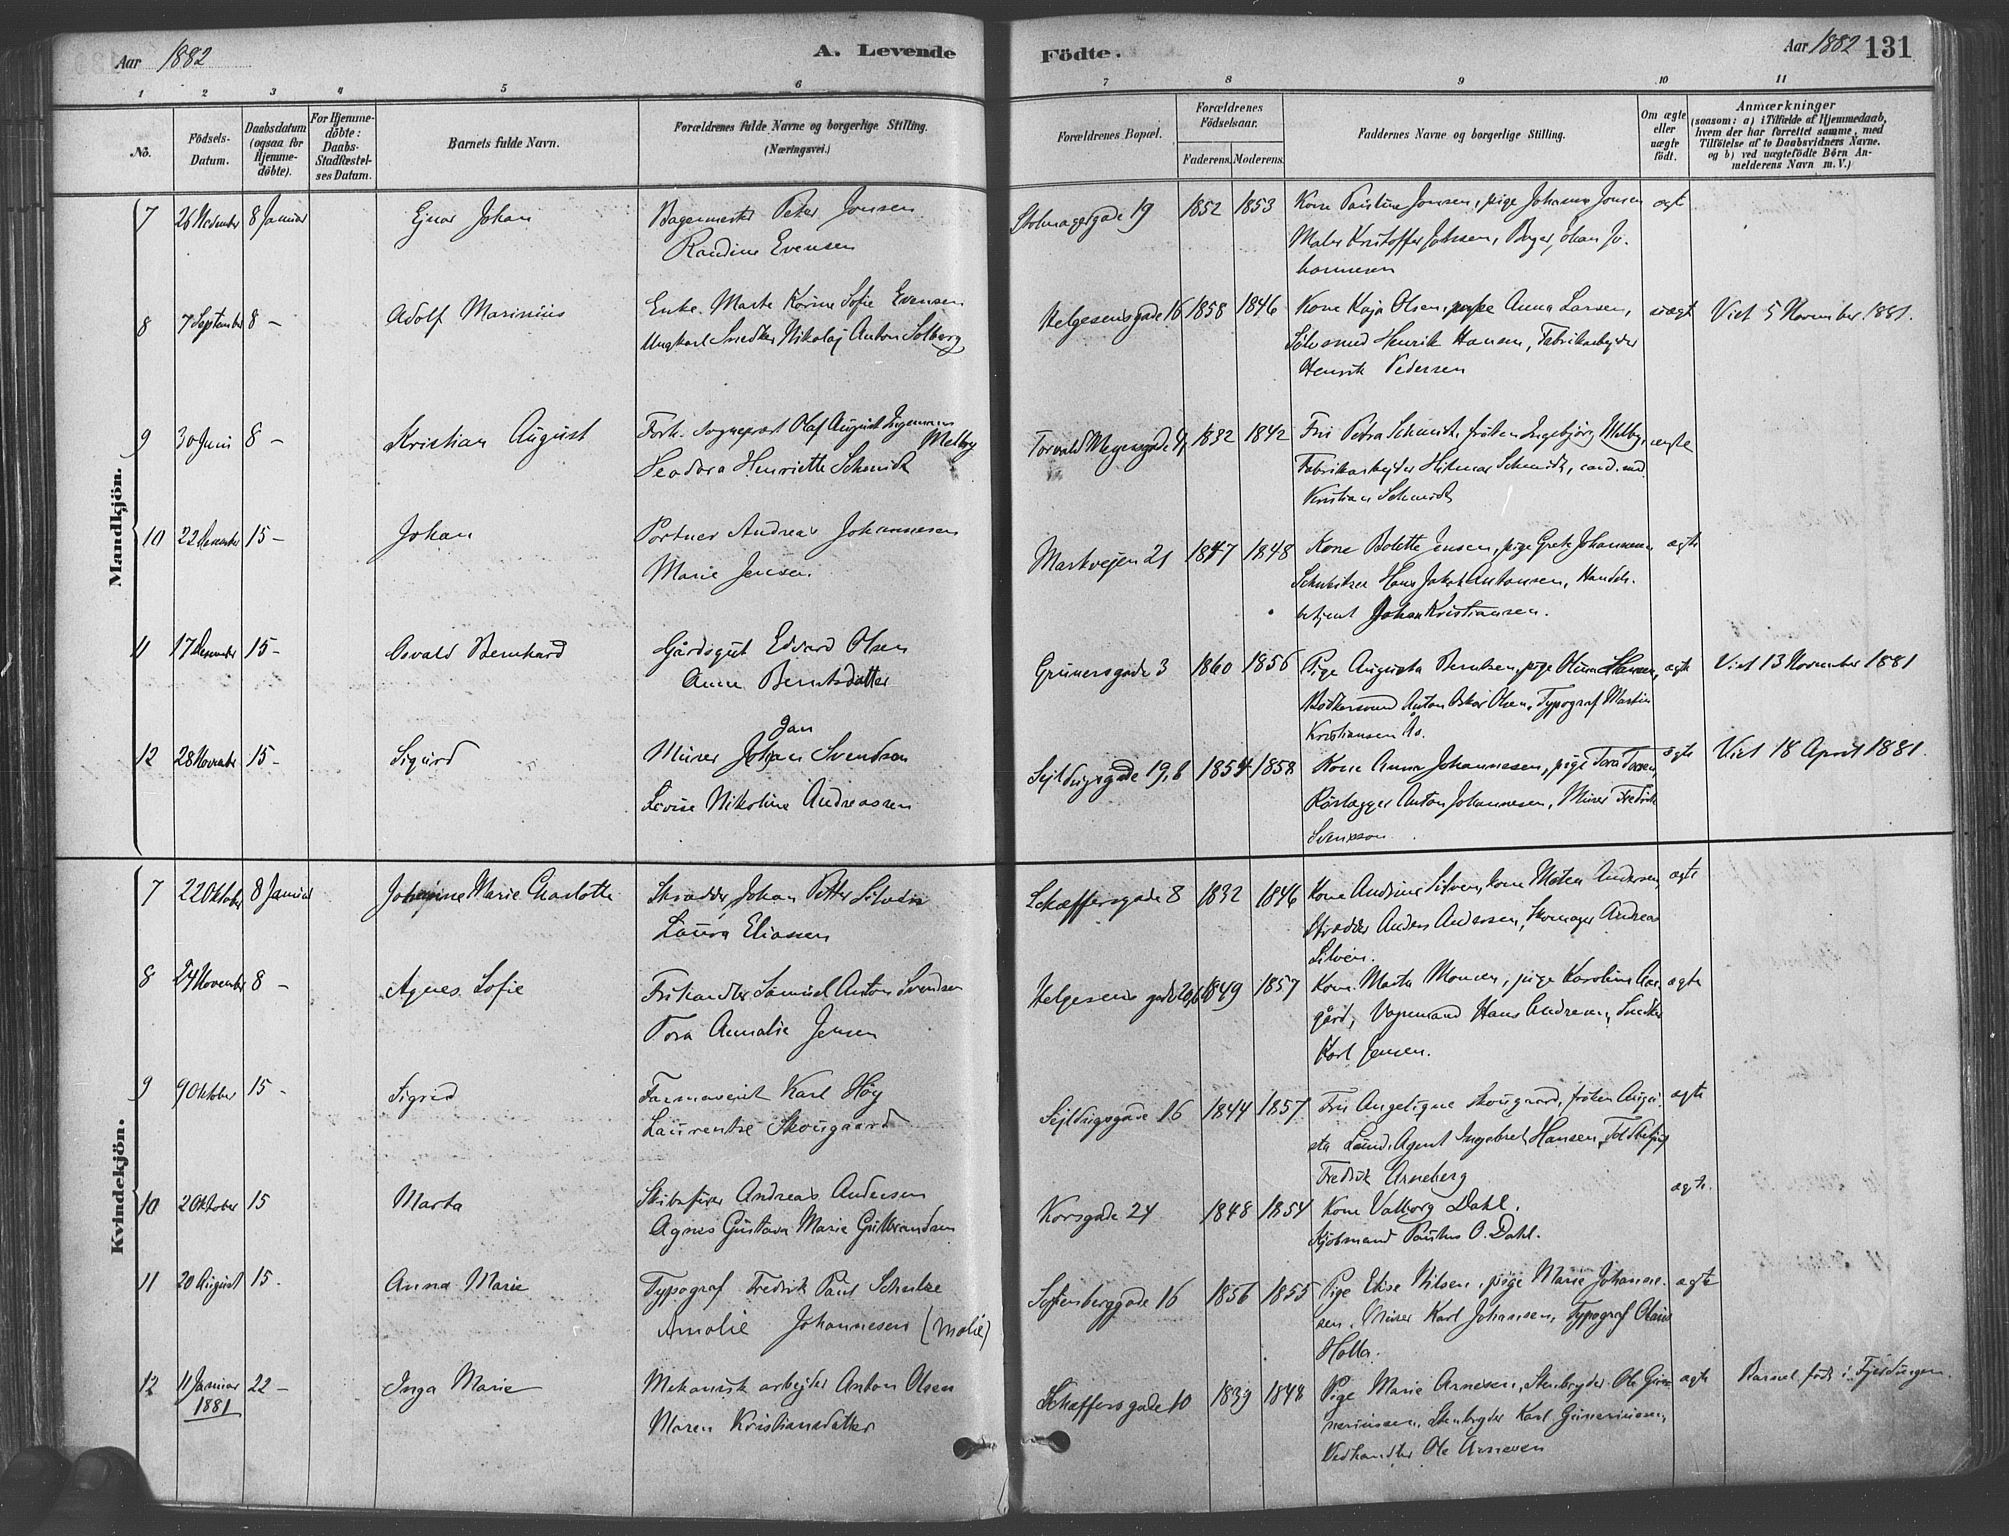 Aar 1882
A. Levende
Födte.
Aar 1882 131
1 2 3 4 5 6 7 8 9 10 11
No.
Födsels-
Datum.
Daabsdatum
(ogsaa for
Hjemme-
döbte).
For Hjemme-
döbte:
Daabs-
Stadfæstel-
ses Datum.
Barnets fulde Navn.
Forældrenes fulde Navne og borgerlige Stilling.
(Næringsvei.)
Forældrenes Bopæl.
Forældrenes
Födselsaar.
Faderens. Moderens.
Faddernes Navne og borgerlige Stilling.
Om ægte
eller
uægte
födt.
Anmærkninger
(saasom: a) i Tilfælde af Hjemmedaab,
hvem der har forrettet samme, med
Tilföielse af to Daabsvidners Navne.
og b) ved uægtefödte Börn An-
melderens Navn m. V.)
Mandkjön.
7 26 November 8 Januar Ejnar Johan
Bagermester Peter Jonsen
Randine Evensen
Stolmagergade 19 1852 1853
Kone Pauline Jonsen, pige Johanna Jonsen
Maler Kristoffer Johnsen, Bager Johan Jo-
hannesen
ægte
8 7 September 8 – Adolf Marinius
Enke Marte Karine Sofie Evensen
Ungkarl Snedker Nikolaj Anton Solberg
Helgesensgade 16 1858 1846
Kone Kaja Olsen, pige Anna Larsen,
Sölvsmed Henrik Hansen, Fabrikarbejder
Henrik Pedersen
uægt
Viet 5 November 1881.
9 30 Juni 8 – Kristian August
Forh. Sogneprest Olaf August Ingemann
Melby
Teodora Henriette Schmidt
Torvald Meyersgade 1832 1842
Fru Petra Schmidt, fröken Ingebjörg Melby,
Fabrikarbejder Hilmar Schmidt, cand. med
Kristian Schmidt
ægte
10 22 Desember 15 – Johan
Portner Andreas Johannesen
Marie Jensen
Markvejen 21 1847 1848
Kone Bolette Jensen, pige Grete Johannesen
Hans Jakob Antonsen, Handels-
betjent Johan Kristiansen.
ægte
11 17 Desember 15 – Osvald Bernhard
Gårdsgut Edvard Olsen
Anne Berntsdatter
Grünersgade 3 1860 1856
Pige Augusta Berntsen, pige Oluma Hansen,
Bödkersvend Anton Oskar Olsen, Typograf Martin
Kristiansen Ås.
ægte
Viet 13 November 1881
12 28 November 15 – Sigurd
Jan
Murer Johan Svendsen
Lovise Nikoline Andreassen
Sejldugsgade 19,b 1854 1858
Kone Anna Johannesen, pige Tora
Rörlægger Anton Johannesen, Murer Fredrik
Svensson
ægte
Viet 18 April 1881
Kvindekjön.
7 22 Oktober 8 Januar Johanne Marie Charlotte
Skrædder Johan Petter Silvén
Laura Eliassen
Schæffersgade 8 1832 1846
Kone Andrine Silven, kone Matea Andersen,
Skrædder Anders Andersen, Skomager Andreas
Silven.
ægte
8 24 November 8 – Agnes Sofie
Fiskandler Samuel Anton Svendsen
Tora Annalie Jensen
Helgesens gade 20,b 1849 1857
Kone Marta Monsen, pige Karoline Aas-
gård, Vognmand Hans Andresen, Snedker
Karl Jensen.
ægte
9 9 Oktober 15 – Sigrid
Farmaceut Karl Höy
Laurentze Skougaard
Sejlduggsgade 16 1844 1857
Fru Angelique Skougaard, fröken Augu-
sta Lund, Agent Ingebret Hansen,
Fredrik Arneberg
ægte
10 2 Oktober 15 Marta
Skibsförer Andreas Andersen
Agnes Gustava Marie Gulbrandsen
Korsgade 24 1848 1854
Kone Valborg Dahl.
Kjöbmand Paulus O. Dahl.
ægte.
11 20 August 15 – Anna Marie
Typograf Fredrik Paul Schulze
Amalie Johannesen (Molie)
Sofienberggade 16 1856 1855
Pige Elise Nilsen, pige Marie Johanne-
sen, Murer Karl Johansen, Typograf Olaus
Holla.
ægte
12 11 Januar 22 – Inga Marie
1881
Mekanisk arbejder Anton Olsen
Maren Kristiansdatter
Schæffersgade 10 1839 1848
Pige Marie Arnesen, Stenhugger Ole Gun-
neriussen, Stenhugger Karl Gunneriussen,
Vedhandler Ole Arnesen
ægte
Barnet födt i Fjeldungen.